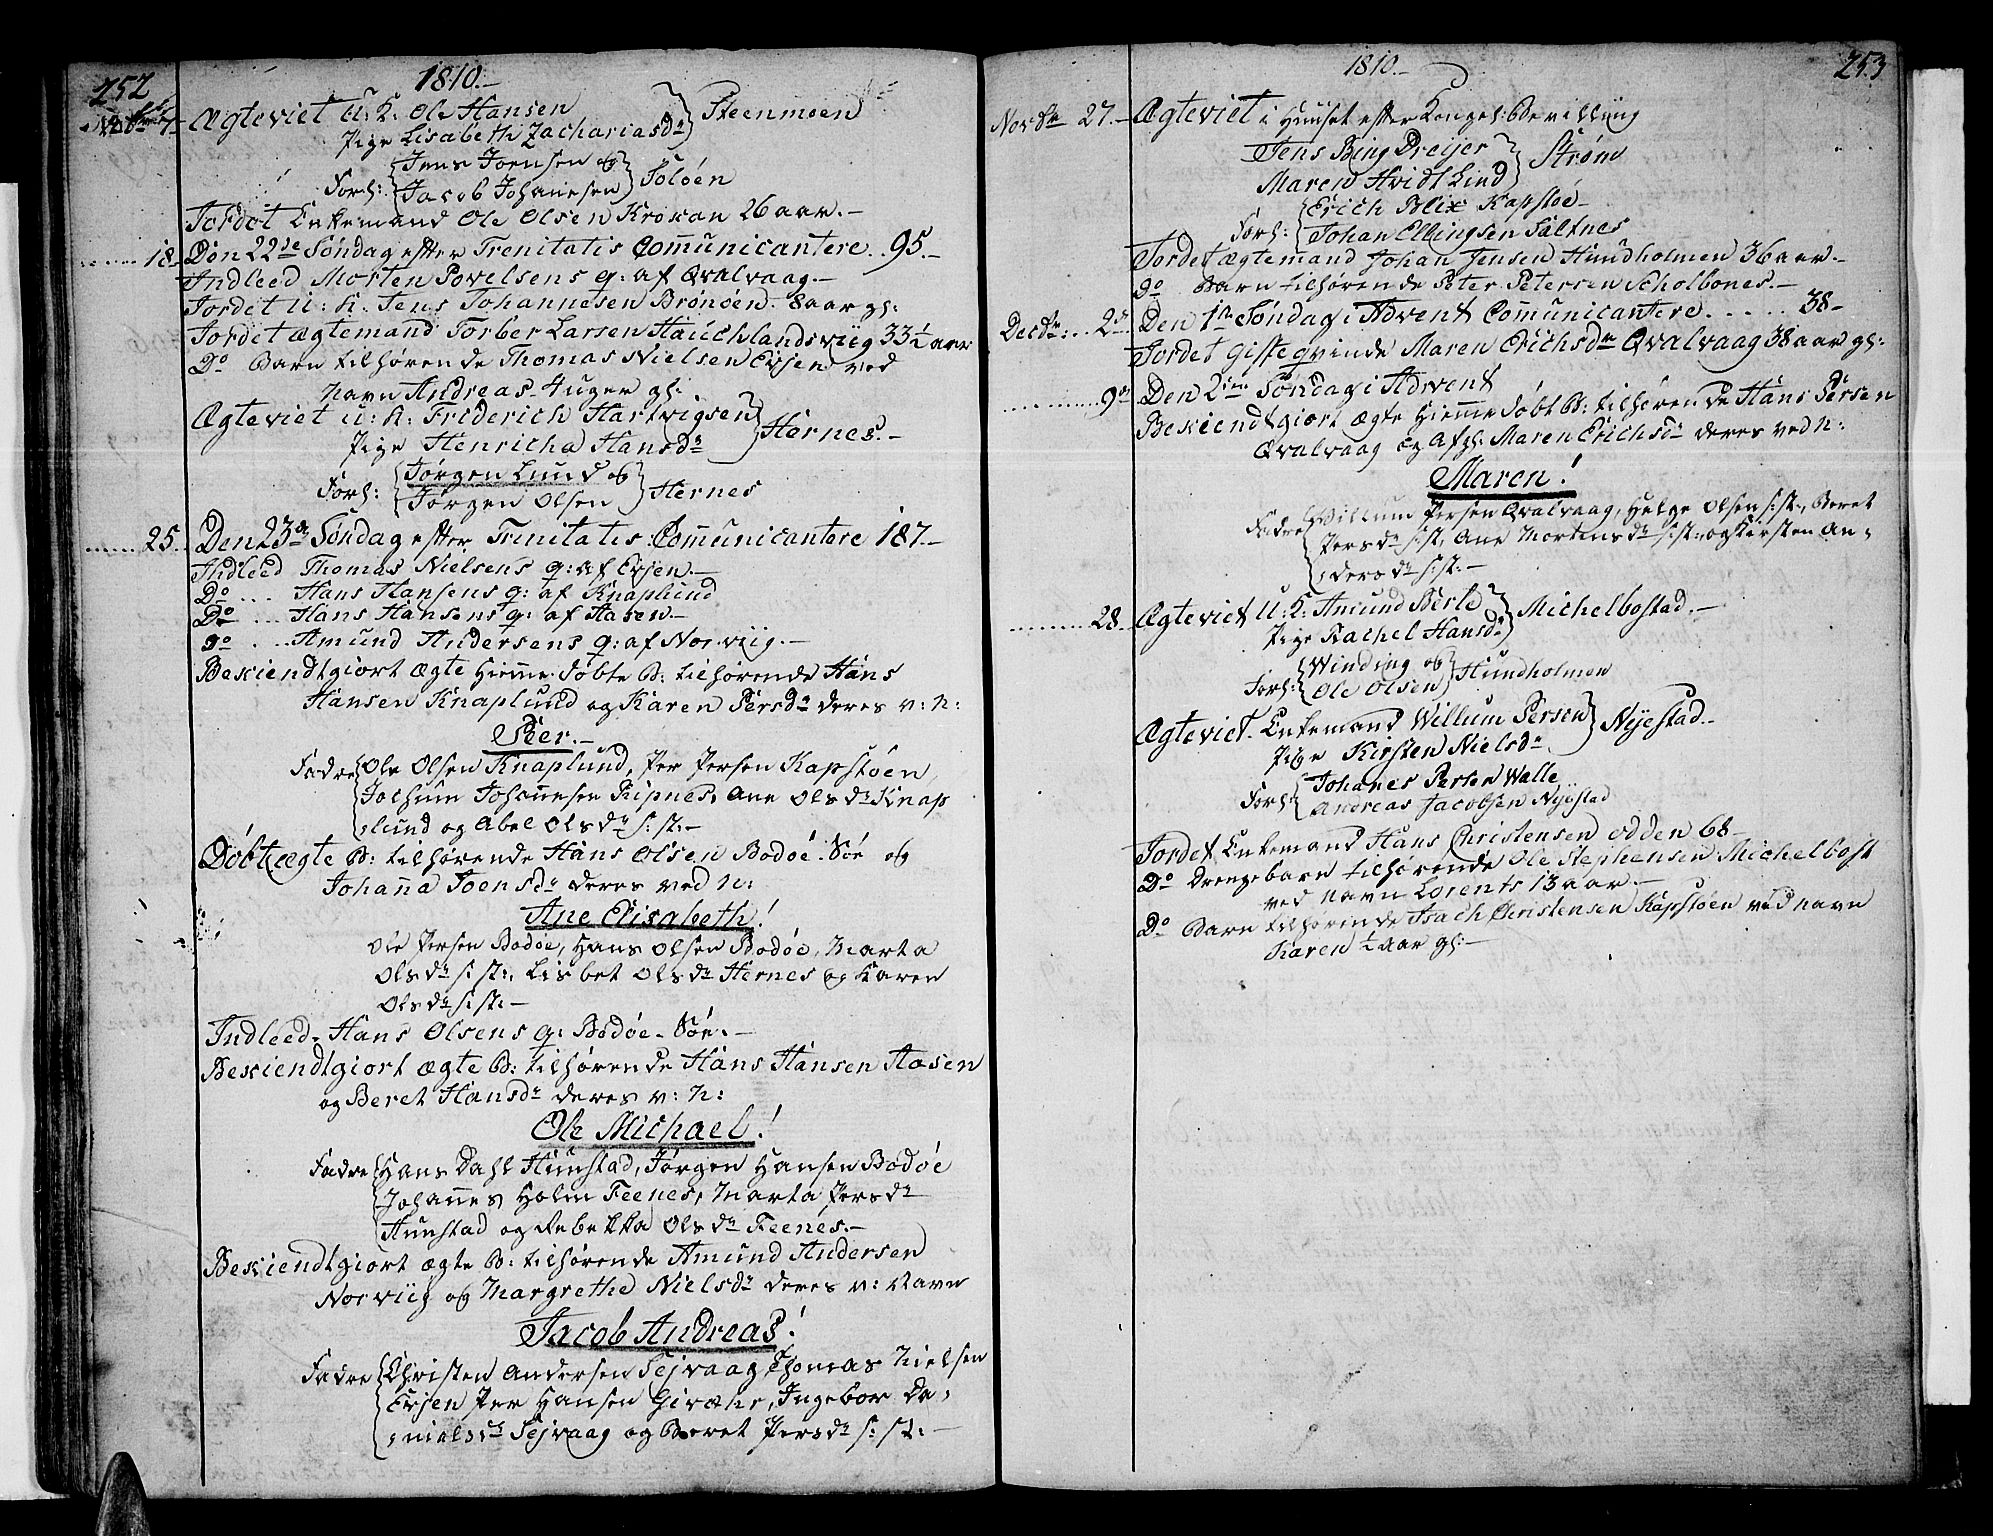 252
1810.-
Ægteviet U: K: Ole Hansen
Pige Lisabeth Zachariasd:r } Steenmoen
Forl: { Jens Joensen og
Jacob Johannesen } Soløen
Jordet Enkemand Ole Olsen Kroxan 26 aar.-
18. Den 22de Søndag efter Trenitatis Comunicantere. 95.-
Indleed Morten Povelsens q: af Qvalvaag.-
Jordet u: k. Jens Johannesen Brønøen. 8 aar gl:
Jordet ægtemand Torber Larsen Hauchlandsviig 33 ½ aar
Do Barn tilhørende Thomas Nielsen Evjen ved
Navn Andreas 4 uger gl:
Ægteviet u: k: Friderich Hartvigsen
Pige Henricha Hansd:r } Hernes.-
Forl: { Jørgen Lund og
Jørgen Olsen } Hernes
25. Den 23de Søndag efter Trinitatis Comunicantere 187.-
Indleed Thomas Nielsens q: af Evjen.-
Do ... Hans Hansens q: af Knaplund
Do ... Hans Hansens q: af Aasen.-
Do ... Amund Andersens q: af Norviig.-
Bekiendtgiort ægte hieme døbte B: tilhørende Hans
Hansen Knaplund og Karen Persd:r deres v: N:
Peer.-
Fadre { Ole Olsen Knaplund, Per Persen Kapstøen
Jochum Johannesen Kipnes, Ane Olsd:r Knap
lund og Abel Olsd:r s: st:-
Døbt ægte B: tilhørende Hans Olsen Bodøe. Sør og
Johanna Joensd:r deres ved N:
Ane Elisabeth!
Ole Persen Bodøe, Hans Olsen Bodøe, Marta
Olsd:r s: st:, Lisbet Olsd:r Hernes og Karen
Olsd:r s: st:-
Indleed. Hans Olsens q: Bodøe. Sør.-
Bekiendtgiort ægte B: tilhørende Hans Hansen Aasen
og Beret Hansd:r deres v: N:
Ole Michael!
Fadre { Hans Dahl Hunstad, Jørgen Hansen Bodøe
Johannes Holm Feenes, Marta Persd:r
Hunstad og Rebekka Olsd:r Feenes.-
Bekiendtgiort ægte B: tilhørende Amund Andersen
Norviig og Margrethe Nielsd:r deres v: Navn
Jacob Andreas!
Fadre { Christen Andersen Sejvaag, Thomas Nielsen
Evjen Per Hansen Givæhr, Ingebor Da,
,nielsd:r Sejvaag og Beret Persd:r s: st:-
1810.-
253
Novbr 27.- Ægteviet i Huuset efter Kongel: Bevilling
Jens Bing Dreyer
Maren Hvidt Lind } Strøm
Forl: { Erich Blix Kapstøe-
Johan Ellingsen Saltnes
Jordet ægtemand Johan Jensen Hundholmen 36 aar.-
Do Barn tilhørende Peter Petersen Scholbones.-
Decbr: .. 2den Den 1ste Søndag i Advent Comunicantere ..... 38-
Jordet Gifteqvinde Maren Erichsd:r Qvalvaag 38 aar gl:
9de Den 2den Søndag i Advent
Bekiendtgiort ægte hieme døbt B: tilhørende Hans Persen
Qvalvaag og Afg: Maren Erichsd:r deres ved N:
Maren!
Fadre { Willum Persen Qvalvaag, Helge Olsen s: st:, Beret
Persd:r s: st, Ane Mortensd:r s: st: og Kirsten An,
,dersd:r s: st:-
28. Ægteviet U: K: Amund Berle
Pige Rachel Hansd:r } Michelbostad.-
Forl: { Winding og
Ole Olsen } Hundholmen
Ægteviet. Enkemand Willum Persen
Pige Kirsten Nielsd:r } Nyestad.-
Forl: { Johanes Persen Walle
Andreas Jacobsen Nyestad
Jordet Enkemand Hans Christensen Odden 68-
Do Drengebarn tilhørende Ole Stephensen Michelbost
ved navn Lorents 13 aar.-
Do Barn tilhørende Isach Christensen Kapstøen ved navn
Karen ½ aar gl:-